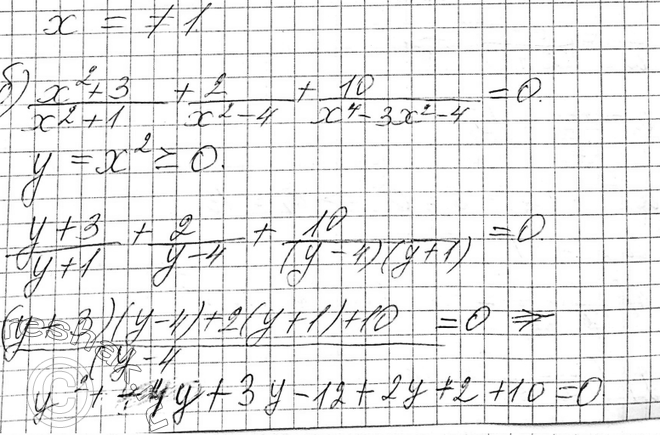 x = ≠ 1
б) (x²+3)/(x²+1) + 2/(x²-4) + 10/(x⁴-3x²-4) = 0.
y = x² ≥ 0.
(y+3)/(y+1) + 2/(y-4) + 10/((y-4)(y+1)) = 0.
((y+3)(y-4)+2(y+1)+10)/(y-4 = 0 ⇒
y² + -4y + 3y - 12 + 2y + 2 + 10 = 0